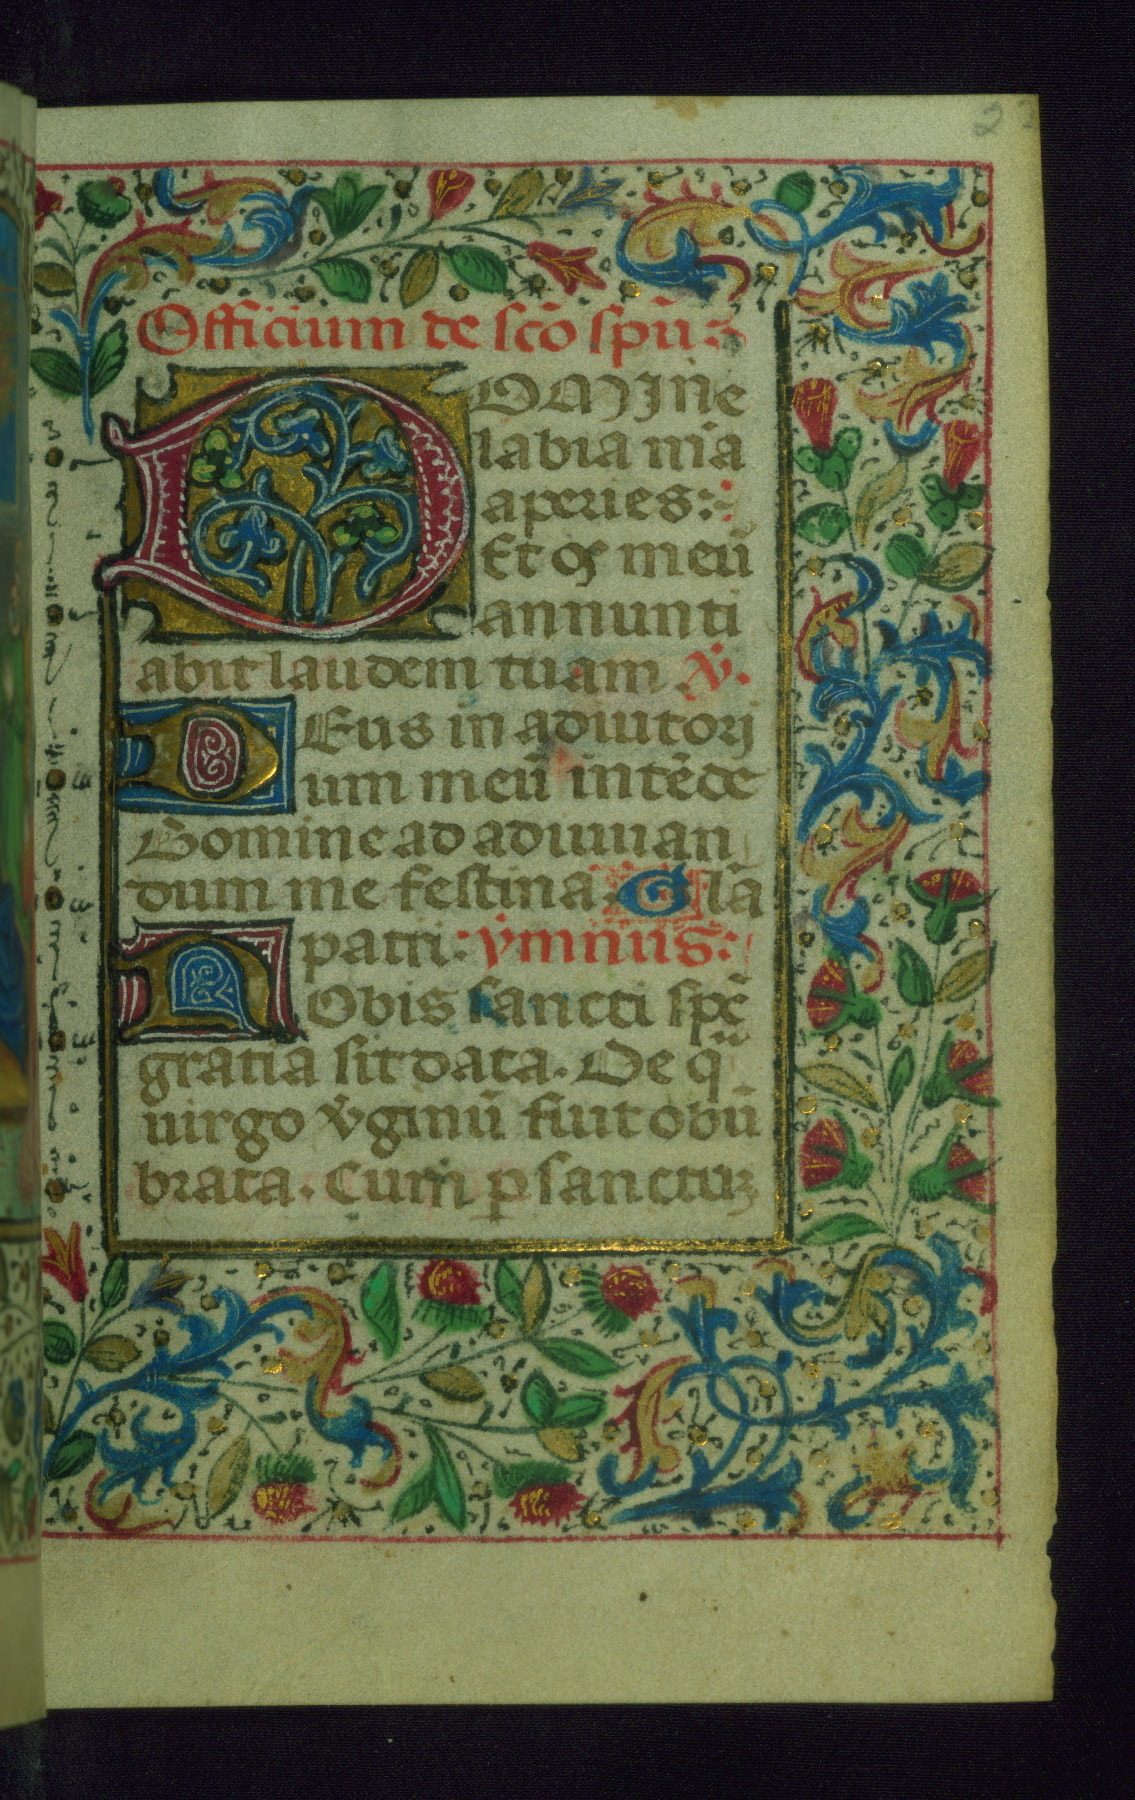 Officium de sc̄o spūs
DOMINe
labia m̄a
aperies:
Et os meū
annunti
abit laudem tuam ℣.
Deus in adiutori
um meū intēde
Domine ad adiuuan
dum me festina. Gl̄a
patri: ymnus:
Nobis sancti sp̄c
gratia sit data. De q̄
uirgo v̄ginū fuit obū
brata. Cum p̲ sanctuꝫ